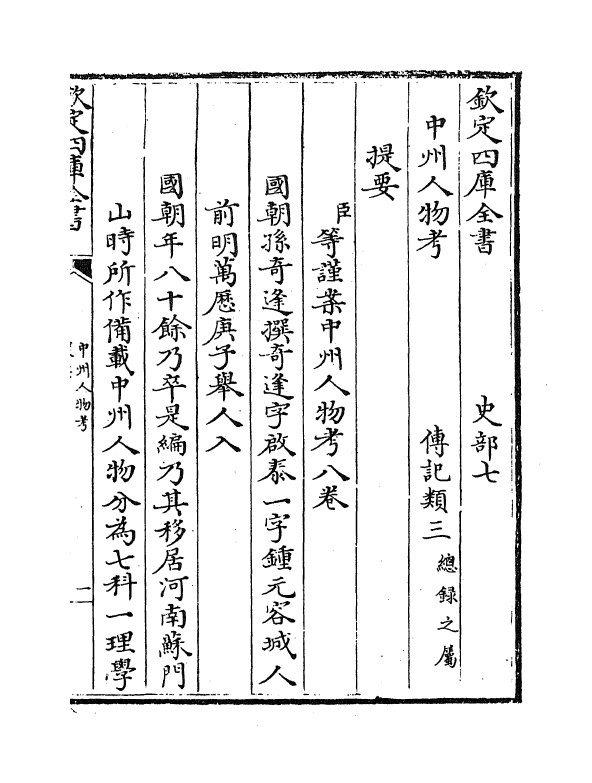 欽定四庫全書　史部七
中州人物考　傳記類三　總錄之屬
提要
臣等謹案中州人物考八卷
國朝孫奇逢撰奇逢字啟泰一字鍾元容城人
前明萬歷庚子舉人入
國朝年八十餘乃卒是編乃其移居河南蘇門
山時所作備載中州人物分為七科一理學
欽定四庫全書
中州人物考
一